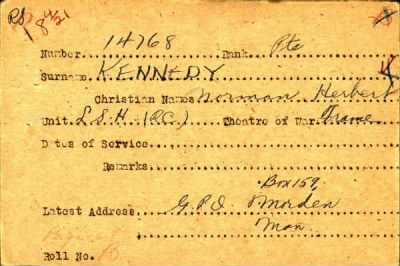 Number 14768 Rank Pte
Surname KENNEDY
Christian Names Norman Herbert
Unit L.S.H. (R.C.) Theatre of War France
Dates of Service
Remarks
Box 159,
Latest Address G.P.O. Morden
Man.
Roll No. B